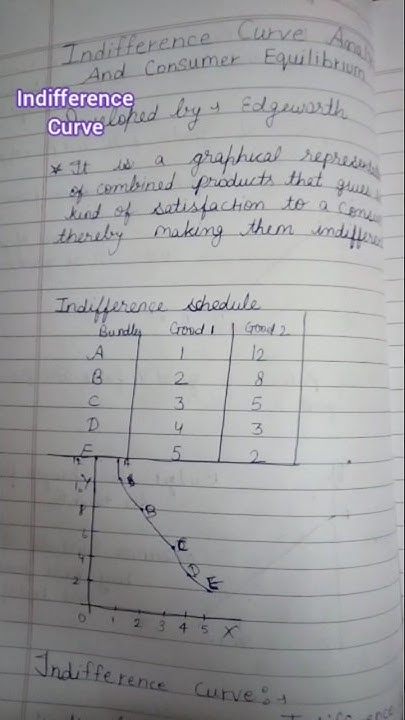 Indifference Curve
And Consumer Equilibrium
Indifference
Curve
by → Edgeworth
* It is a graphical
of combined products that gives
kind of satisfaction to a
thereby making them
Indifference schedule
Bundles Good 1 Good 2
A 1 12
B 2 8
C 3 5
D 4 3
E 5 2
12 A
10 Y
8 B
6
4 C
D
2 E
0 1 2 3 4 5 X
Indifference Curve :→